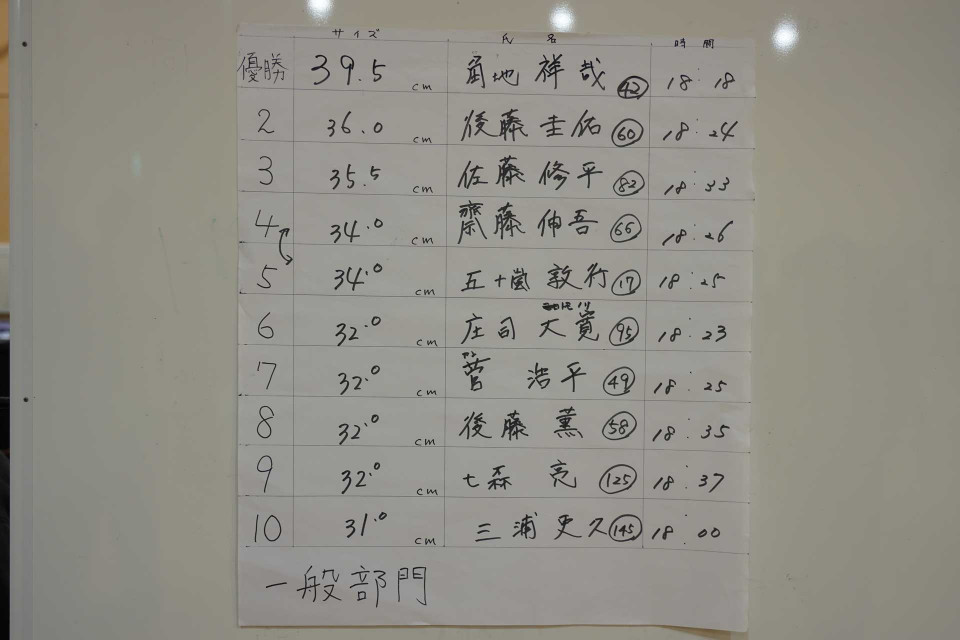 サイズ 氏名 時間
優勝 39.5 cm 角地 祥哉 42 18:18
2 36.0 cm 後藤 圭佑 60 18:24
3 35.5 cm 佐藤 修平 82 18:33
4 34.0 cm 齋藤 伸吾 66 18:26
5 34.0 cm 五十嵐 敦行 17 18:25
6 32.0 cm 庄司 大寛 95 18:23
7 32.0 cm 菅 浩平 49 18:25
8 32.0 cm 後藤 薫 58 18:35
9 32.0 cm 七森 亮 125 18:37
10 31.0 cm 三浦 史久 145 18:00
一般部門